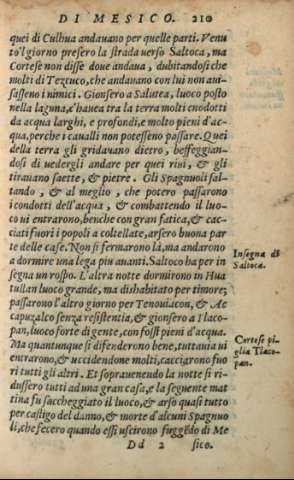 DI MESICO. 210
quei di Culhua andauano per quelle parti. Venu
to'l giorno presero la strada uerso Saltoca, ma
Cortese non disse doue andaua, dubitandosi che
molti di Tezcuco, che andauano con lui non aui-
sasseno i nimici. Gionsero a Saltoca, luoco posto
nella laguna, c'hauea tra la terra molti condotti
da acqua larghi, e profondi, e molto pieni d'ac-
qua, perche i caualli non potesseno passare. Quei
della terra gli gridauano dietro, beffeggian-
dosi di uedergli andare per quei riui, & gli
tirauano saette, & pietre. Gli Spagnuoli sal-
tando, & al meglio, che potero passarono
i condotti dell'acqua, & combattendo il luo-
co ui entrarono, benche con gran fatica, & cac-
ciati fuori i popoli a coltellate, arsero buona par
te delle case. Non si fermarono là, ma andarono
a dormire una lega piu auanti. Saltoco ha per in
segna un rospo. L'altra notte dormirono in Hua
tullan luoco grande, ma dishabitato per timore;
passarono l'altro giorno per Tenouiacon, & Ac
capuzalco senza resistentia, & gionsero a Tlaco-
pan, luoco forte di gente, con fossi pieni d'acqua.
Ma quantunque si difendereno bene, tuttauia ui
entrarono, & uccidendone molti, cacciarono fuo
ri tutti gli altri. Et soprauenendo la notte si ri-
dussero tutti ad una gran casa, e la seguente mat
tina fu saccheggiato il luoco, & arso quasi tutto
per castigo del danno, & morte d'alcuni Spagnuo
li, che fecero quando essi uscirono fuggẽdo di Me
Dd 2 sico.
Insegna di
Saltoca.
Cortese pi-
glia Tlaco-
pan.